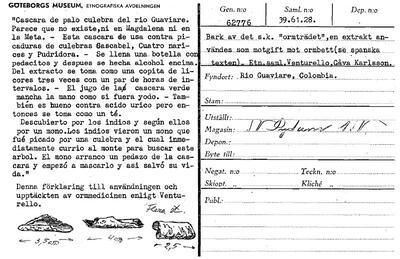 GÖTEBORGS MUSEUM, ETNOGRAFISKA AVDELNINGEN
"Cascara de palo culebra del rio Guaviare.
Parece que no existe,ni en Magdalena ni en
la Meta. - Esta cascara se usa contra pi-
caduras de culebras Cascabel, Cuatro nari-
ces y Pudridora. - Se llena una botella con
pedacitos y despues se hecha alcohol encima.
Del extracto se toma como una copita de li-
cores tres veces con un par de horas de in-
tervalos. - El jugo de la cascara verde
mancha la mano como si fuera yodo. - Tam-
bien es bueno contra acido urico pero enton-
ces se toma como un té.
Descubierto por los indios y según ellos
por un momo.Los indios vieron un mono que
fué picado por una culebra y el cual imme-
diatamente currio al monte para buscar este
arbol. El mono arranco un pedazo de la cas-
cara y empezó a mascarlo y asi salvó su vi-
da."
Denna förklaring till användningen och
upptäckten av ormmedicinen enligt Ventu-
rello.
3,5cm
4cm
2,5
Gen. n:o
62776
Saml. n:o
39.61.28.
Dep. n:o
Bark av det s.k. "ormträdet",en extrakt an-
vändes som motgift mot ormbett(se spanska
texten). Etn.saml.Venturello.Gåva Karlsson.
Fyndort: Rio Guaviare, Colombia.
Stam:
Utställt:
Magasin:
Depon.:
Byte till:
Negat. n:o
Teckn. n:o
Skiopt. n:o
Kliché
Publ.: